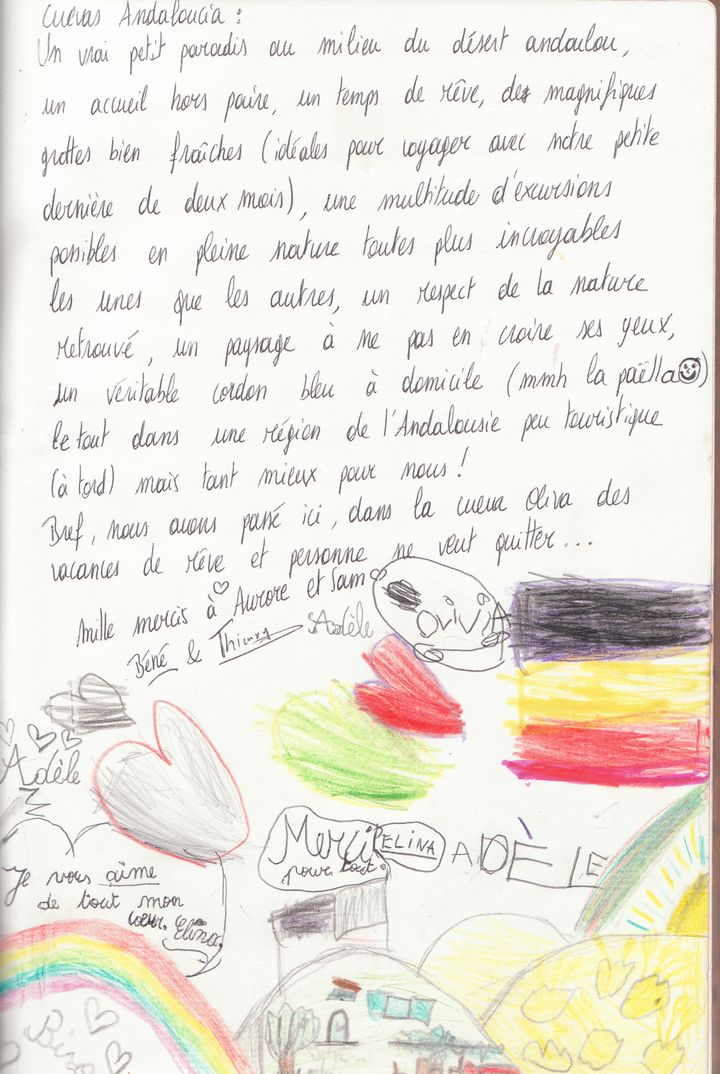 Cuevas Andaloucia :
Un vrai petit paradis au milieu du désert andalou,
un accueil hors paire, un temps de rêve, des magnifiques
grottes bien fraîches (idéales pour voyager avec notre petite
dernière de deux mois), une multitude d'excursions
possibles en pleine nature toutes plus incroyables
les unes que les autres, un respect de la nature
retrouvé, un paysage à ne pas en croire ses yeux,
un véritable cordon bleu à domicile (mmh la paëlla☺)
le tout dans une région de l'Andalousie peu touristique
(à tord) mais tant mieux pour nous !
Bref, nous avons passé ici, dans la cueva Oliva des
vacances de rêve et personne ne veut quitter...
Mille mercis à Aurore et Sam
Béné & Thierry
Adèle
OLiViA
Adèle
Merci
pour tout.
ELINA
ADÈLE
Je vous aime
de tout mon
coeur. Elina.